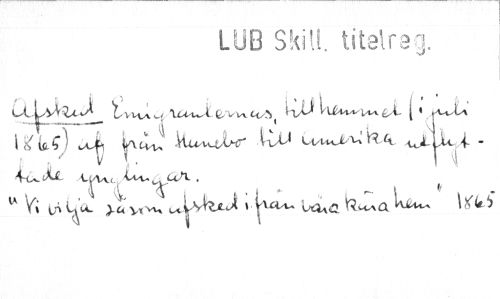 LUB Skill. titelreg.
Afsked Emigranternas, till hemmet (i juli
1865) af från Hunebo till Amerika utflyt-
tade ynglingar.
"Vi vilja såsom afsked ifrån våra kära hem" 1865